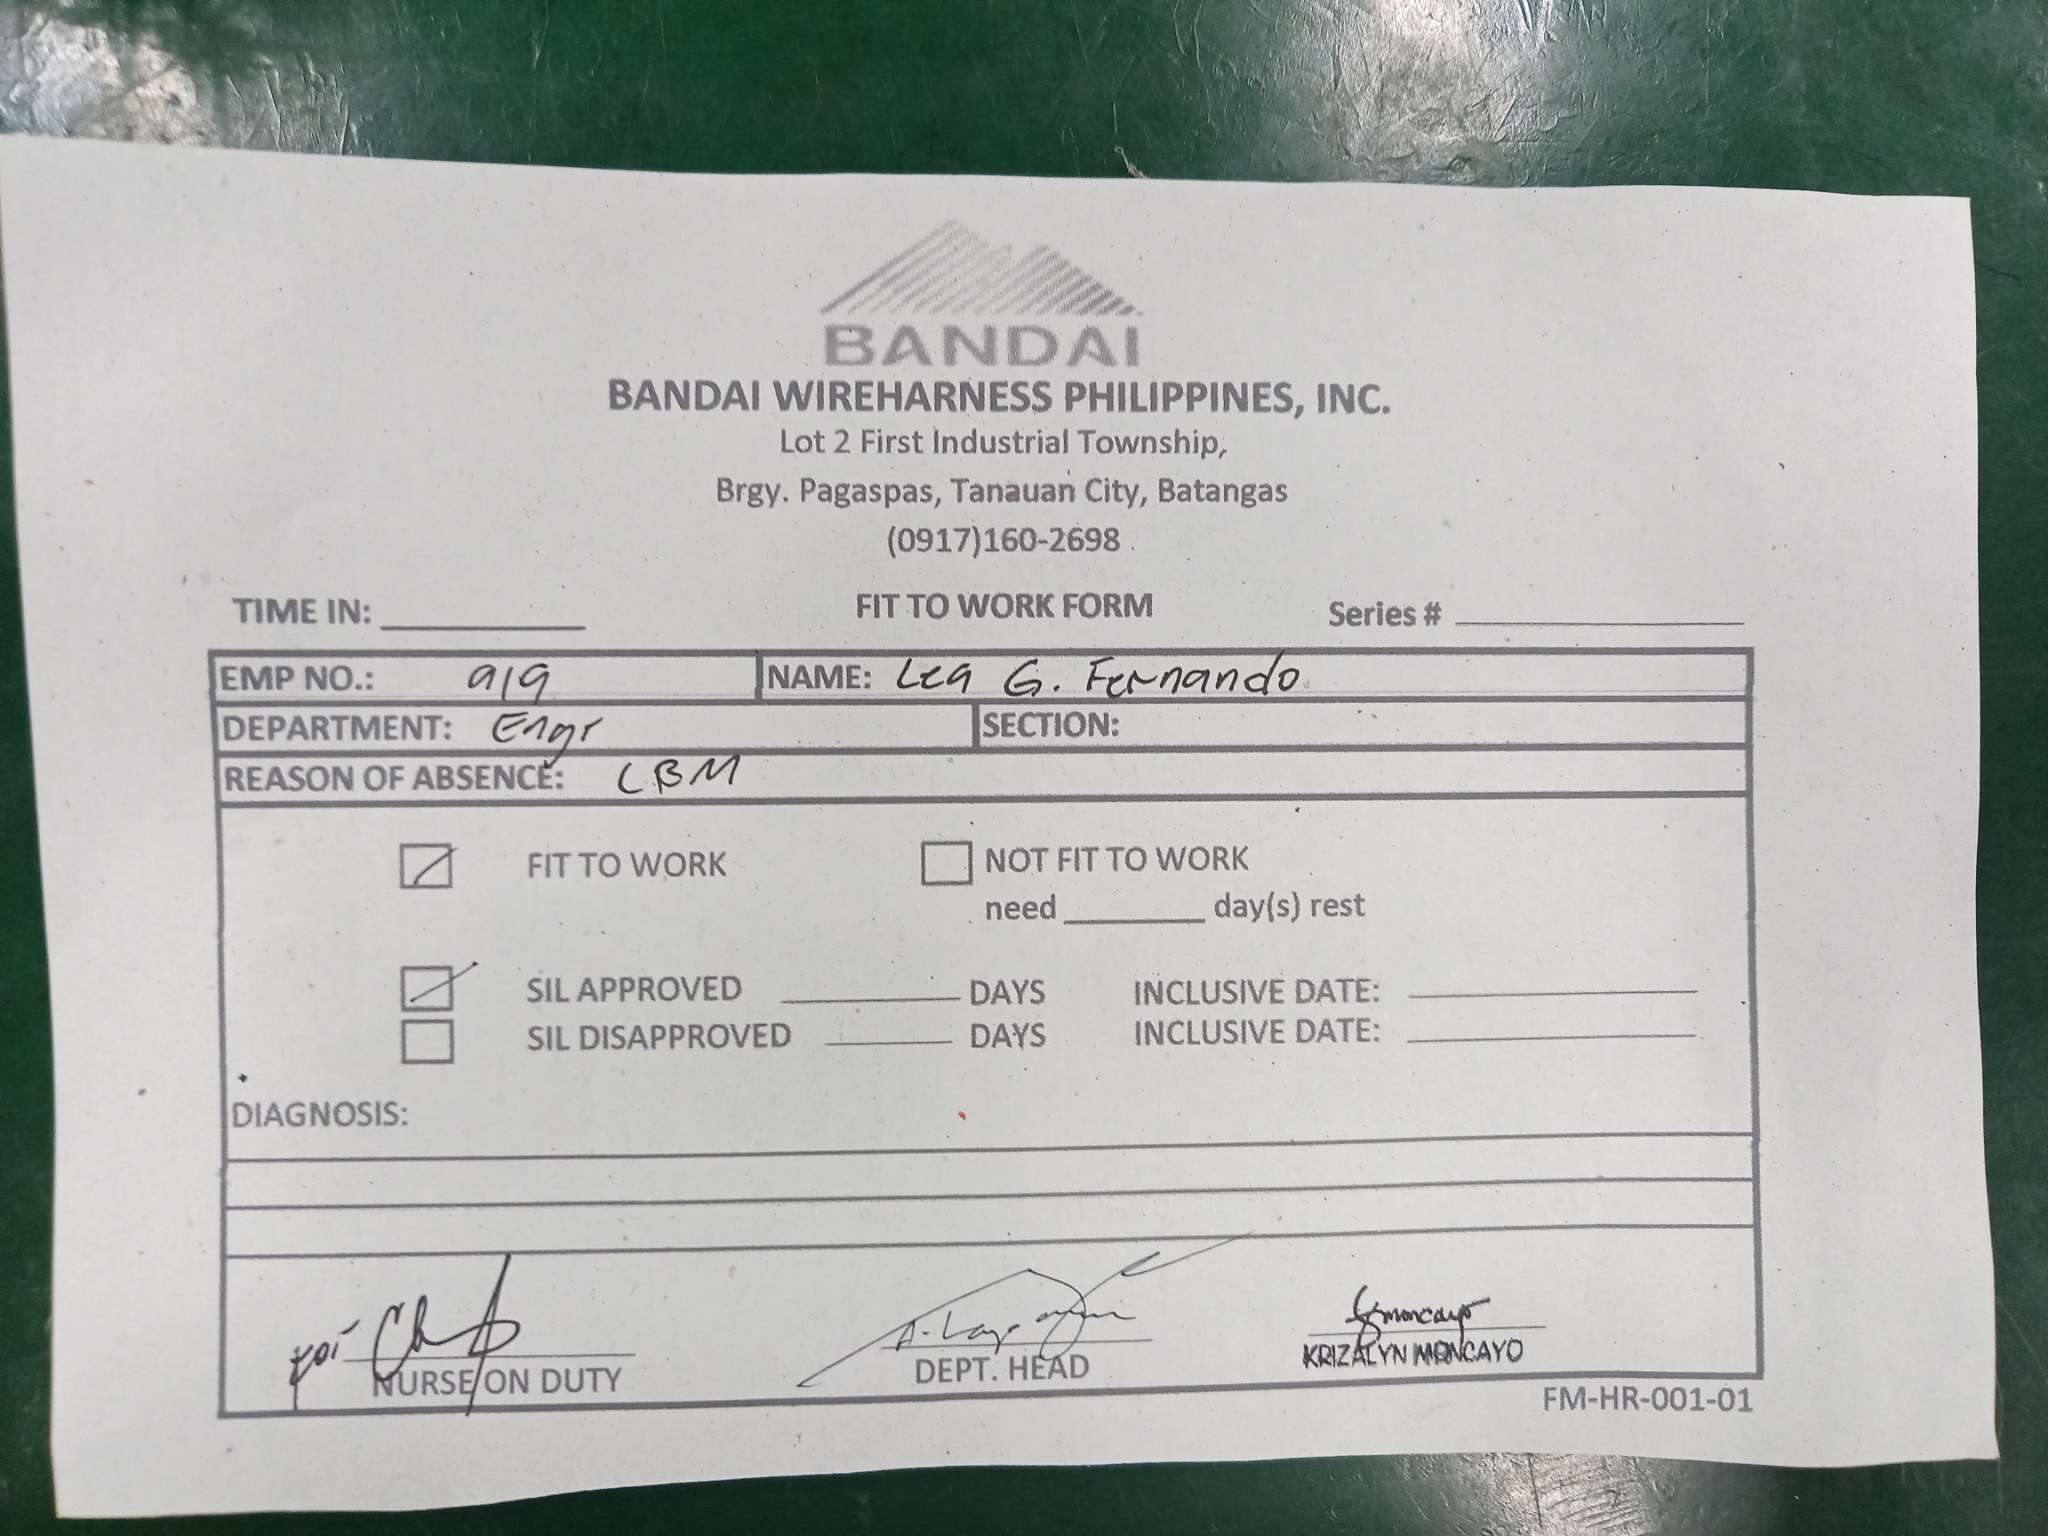 BANDAI
BANDAI WIREHARNESS PHILIPPINES, INC.
Lot 2 First Industrial Township,
Brgy. Pagaspas, Tanauan City, Batangas
(0917)160-2698
TIME IN: FIT TO WORK FORM Series #
EMP NO.: 919 NAME: Lea G. Fernando
DEPARTMENT: Engr SECTION:
REASON OF ABSENCE: LBM
FIT TO WORK NOT FIT TO WORK
need day(s) rest
SIL APPROVED DAYS INCLUSIVE DATE:
SIL DISAPPROVED DAYS INCLUSIVE DATE:
DIAGNOSIS:
NURSE ON DUTY DEPT. HEAD KRIZALYN MONCAYO
FM-HR-001-01